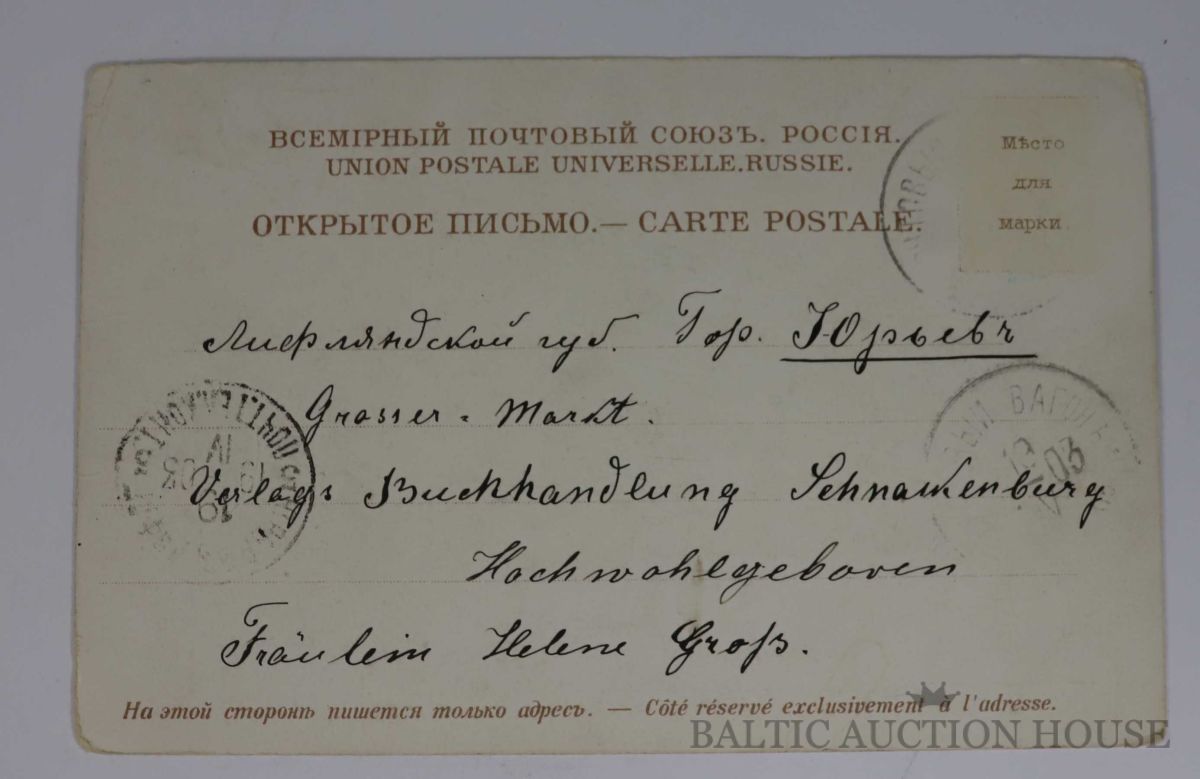 ВСЕМІРНЫЙ ПОЧТОВЫЙ СОЮЗЪ. РОССІЯ.
UNION POSTALE UNIVERSELLE.RUSSIE.
ОТКРЫТОЕ ПИСЬМО.— CARTE POSTALE.
Мѣсто
для
марки
Лифляндской губ. Гор. Юрьевъ
Grosser - Markt.
Verlags Buchhandlung Schnakenburg
Hochwohlgeboren
Fräulein Helene Groß.
На этой сторонѣ пишется только адресъ. — Côté réservé exclusivement à l'adresse.
ВАГОНЪ
03
IV
19
BALTIC AUCTION HOUSE